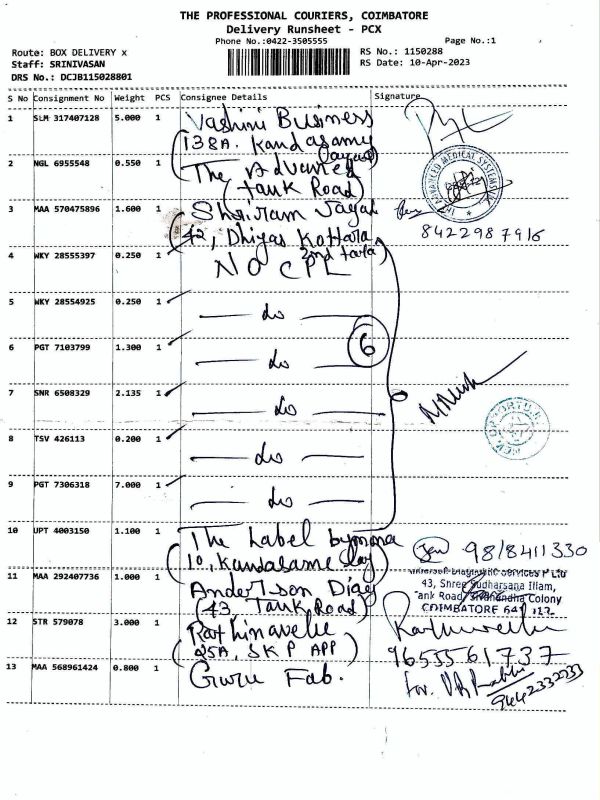 THE PROFESSIONAL COURIERS, COIMBATORE
Delivery Runsheet - PCX
Phone No.:0422-3505555 Page No.:1
Route: BOX DELIVERY x RS No.: 1150288
Staff: SRINIVASAN RS Date: 10-Apr-2023
DRS No.: DCJB115028801
S No Consignment No Weight PCS Consignee Details Signature
1 SLM 317407128 5.000 1 Vashini Business
(138A. Kandasamy
2 NGL 6955548 0.550 1 The Advanced
(Tank Road)
ADVANCED MEDICAL SYSTEMS
3 MAA 570475896 1.600 1 Shriram
(42, Dhiyas Kottara
8422987916
2nd
4 WKY 28555397 0.250 1 NO CPL
5 WKY 28554925 0.250 1 do
6 PGT 7103799 1.300 1 do
6
7 SNR 6508329 2.135 1 do
8 TSV 426113 0.200 1 do
9 PGT 7306318 7.000 1 do
10 UPT 4003150 1.100 1 The Label
(10, 9818411330
11 MAA 292407736 1.000 1 Anderson Diag
43, Shree Sudharsana Illam,
(43, Tank Road) Tank Road, Sivanandha Colony
COIMBATORE 641 012.
12 STR 579078 3.000 1 Rathinavelu
(25A, SKP APP) 9655561737
13 MAA 568961424 0.800 1 Guru Fab.
for.
9442332233